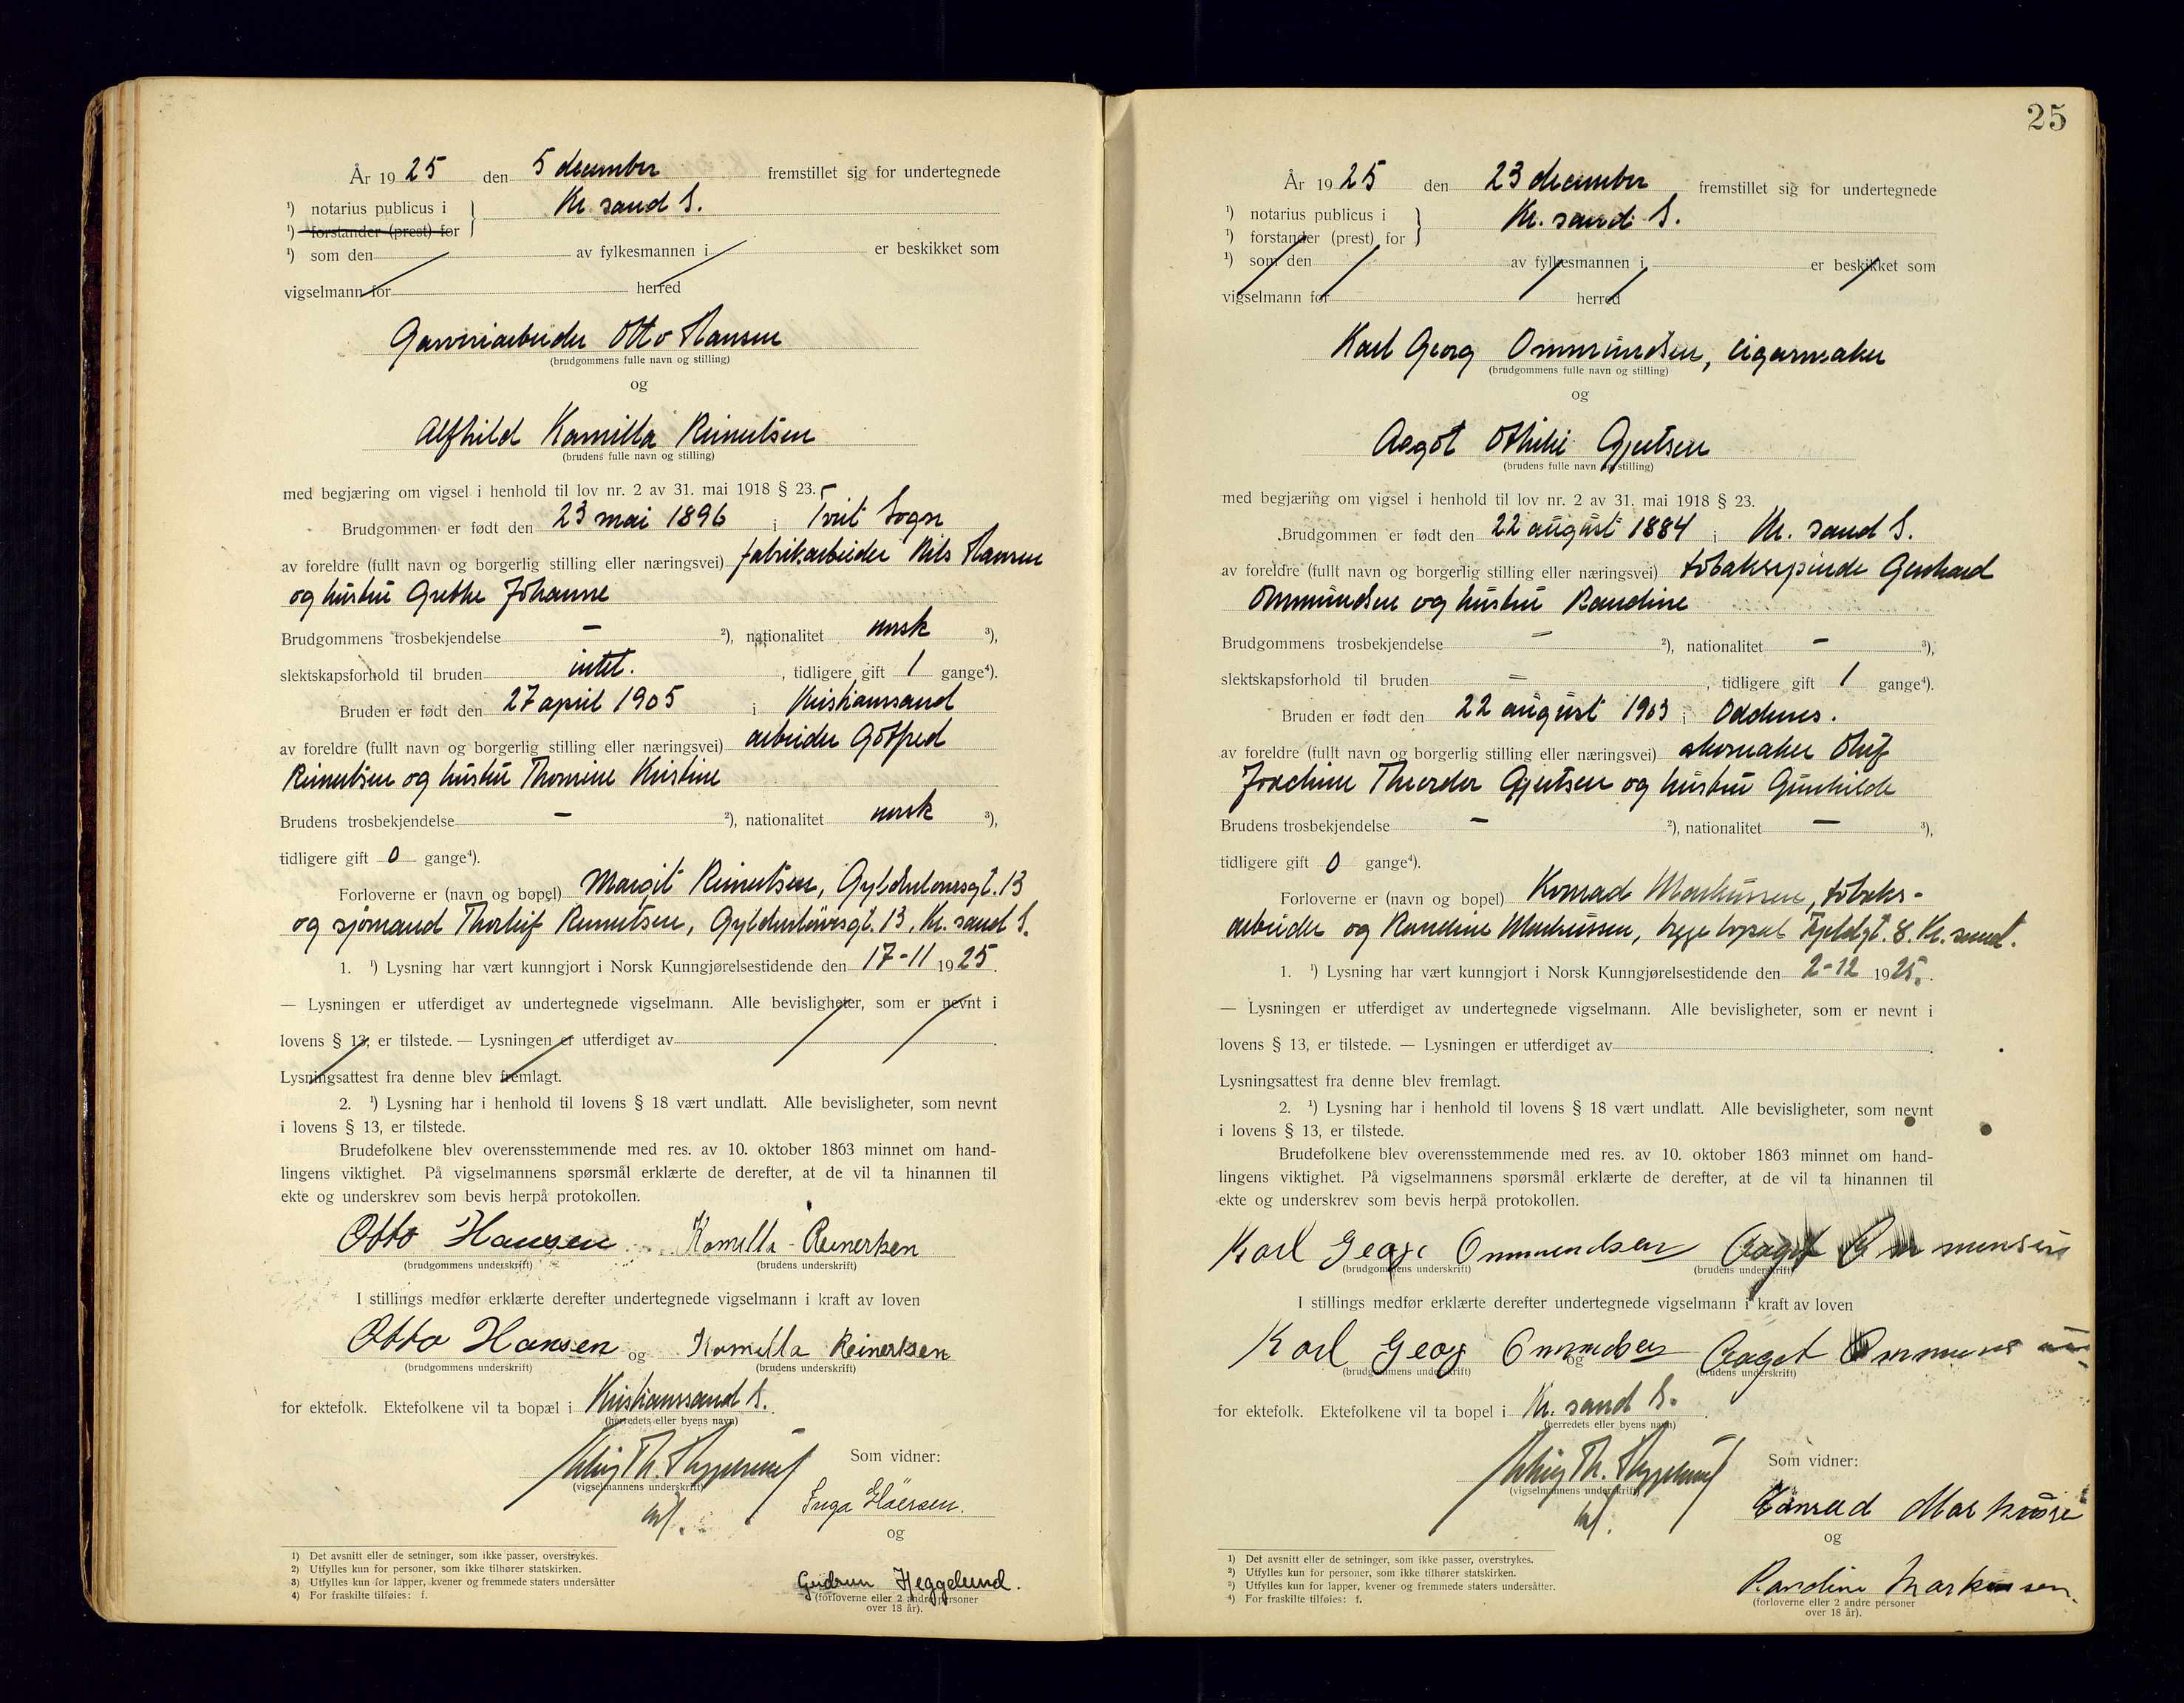 År 1925 den 5 december fremstillet sig for undertegnede
¹) notarius publicus i Kr. sand S.
¹) forstander (prest) for
¹) som den av fylkesmannen i er beskikket som
vigselmann for herred
Garveriarbeider Otto Hansen
(brudgommens fulle navn og stilling)
og
Alfhild Kamilla Reinertsen
(brudens fulle navn og stilling)
med begjæring om vigsel i henhold til lov nr. 2 av 31. mai 1918 § 23.
Brudgommen er født den 23 mai 1896 i Tveit Sogn
av foreldre (fullt navn og borgerlig stilling eller næringsvei) fabrikarbeider Nils Hansen
og hustru Grethe Johanne
Brudgommens trosbekjendelse — ²), nationalitet norsk ³),
slektskapsforhold til bruden intet. , tidligere gift 1 gange⁴).
Bruden er født den 27 april 1905 i Kristianssand
av foreldre (fullt navn og borgerlig stilling eller næringsvei) arbeider Gotfred
Reinertsen og hustru Thomine Kristine
Brudens trosbekjendelse — ²), nationalitet norsk ³),
tidligere gift 0 gange⁴).
Forloverne er (navn og bopel) Margit Reinertsen, Gyldenløvesgt. 13
og sjømand Thorleif Reinertsen, Gyldenløvesgt. 13, Kr. sand S.
1. ¹) Lysning har vært kunngjort i Norsk Kunngjørelsestidende den 17-11 1925.
— Lysningen er utferdiget av undertegnede vigselmann. Alle bevisligheter, som er nevnt i
lovens § 13, er tilstede. — Lysningen er utferdiget av .
Lysningsattest fra denne blev fremlagt.
2. ¹) Lysning har i henhold til lovens § 18 vært undlatt. Alle bevisligheter, som nevnt
i lovens § 13, er tilstede.
Brudefolkene blev overensstemmende med res. av 10. oktober 1863 minnet om hand-
lingens viktighet. På vigselmannens spørsmål erklærte de derefter, at de vil ta hinannen til
ekte og underskrev som bevis herpå protokollen.
Otto Hansen Kamilla Reinertsen
(brudgommens underskrift) (brudens underskrift)
I stillings medfør erklærte derefter undertegnede vigselmann i kraft av loven
Otto Hansen og Kamilla Reinertsen
(brudgommens underskrift) (brudens underskrift)
for ektefolk. Ektefolkene vil ta bopæl i Kristianssand S.
(herredets eller byens navn)
Som vidner:
(vigselmannens underskrift)
Inga
og
Gudrun Heggelund.
(forloverne eller 2 andre personer
over 18 år).
1) Det avsnitt eller de setninger, som ikke passer, overstrykes.
2) Utfylles kun for personer, som ikke tilhører statskirken.
3) Utfylles kun for lapper, kvener og fremmede staters undersåtter
4) For fraskilte tilføies: f.
25
År 1925 den 23 december fremstillet sig for undertegnede
¹) notarius publicus i Kr. sand S.
¹) forstander (prest) for
¹) som den av fylkesmannen i er beskikket som
vigselmann for herred
Karl Georg Ommundsen, cigarmaker
(brudgommens fulle navn og stilling)
og
Aagot Othilie Gjertsen
(brudens fulle navn og stilling)
med begjæring om vigsel i henhold til lov nr. 2 av 31. mai 1918 § 23.
Brudgommen er født den 22 august 1884 i Kr. sand S.
av foreldre (fullt navn og borgerlig stilling eller næringsvei) tobakspinder Gerhard
Ommundsen og hustru Randine
Brudgommens trosbekjendelse — ²), nationalitet — ³),
slektskapsforhold til bruden — , tidligere gift 1 gange⁴).
Bruden er født den 22 august 1903 i Oddernes.
av foreldre (fullt navn og borgerlig stilling eller næringsvei) skomaker Oluf
Joachim Theodor Gjertsen og hustru Gunhilde
Brudens trosbekjendelse — ²), nationalitet — ³),
tidligere gift 0 gange⁴).
Forloverne er (navn og bopel) Konrad Markussen, tobaks-
arbeider og Randine Markussen, begge bopæl 8. Kr. sand.
1. ¹) Lysning har vært kunngjort i Norsk Kunngjørelsestidende den 2-12 1925.
— Lysningen er utferdiget av undertegnede vigselmann. Alle bevisligheter, som er nevnt i
lovens § 13, er tilstede. — Lysningen er utferdiget av .
Lysningsattest fra denne blev fremlagt.
2. ¹) Lysning har i henhold til lovens § 18 vært undlatt. Alle bevisligheter, som nevnt
i lovens § 13, er tilstede.
Brudefolkene blev overensstemmende med res. av 10. oktober 1863 minnet om hand-
lingens viktighet. På vigselmannens spørsmål erklærte de derefter, at de vil ta hinannen til
ekte og underskrev som bevis herpå protokollen.
Karl Georg Ommundsen Aagot Ommunsen
(brudgommens underskrift) (brudens underskrift)
I stillings medfør erklærte derefter undertegnede vigselmann i kraft av loven
Karl Georg Ommundsen og Aagot Ommunsen
(brudgommens underskrift) (brudens underskrift)
for ektefolk. Ektefolkene vil ta bopel i Kr. sand S.
(herredets eller byens navn)
Som vidner:
(vigselmannens underskrift)
Konrad Markussen
og
Randine Markussen.
(forloverne eller 2 andre personer
over 18 år).
1) Det avsnitt eller de setninger, som ikke passer, overstrykes.
2) Utfylles kun for personer, som ikke tilhører statskirken.
3) Utfylles kun for lapper, kvener og fremmede staters undersåtter.
4) For fraskilte tilføies: f.